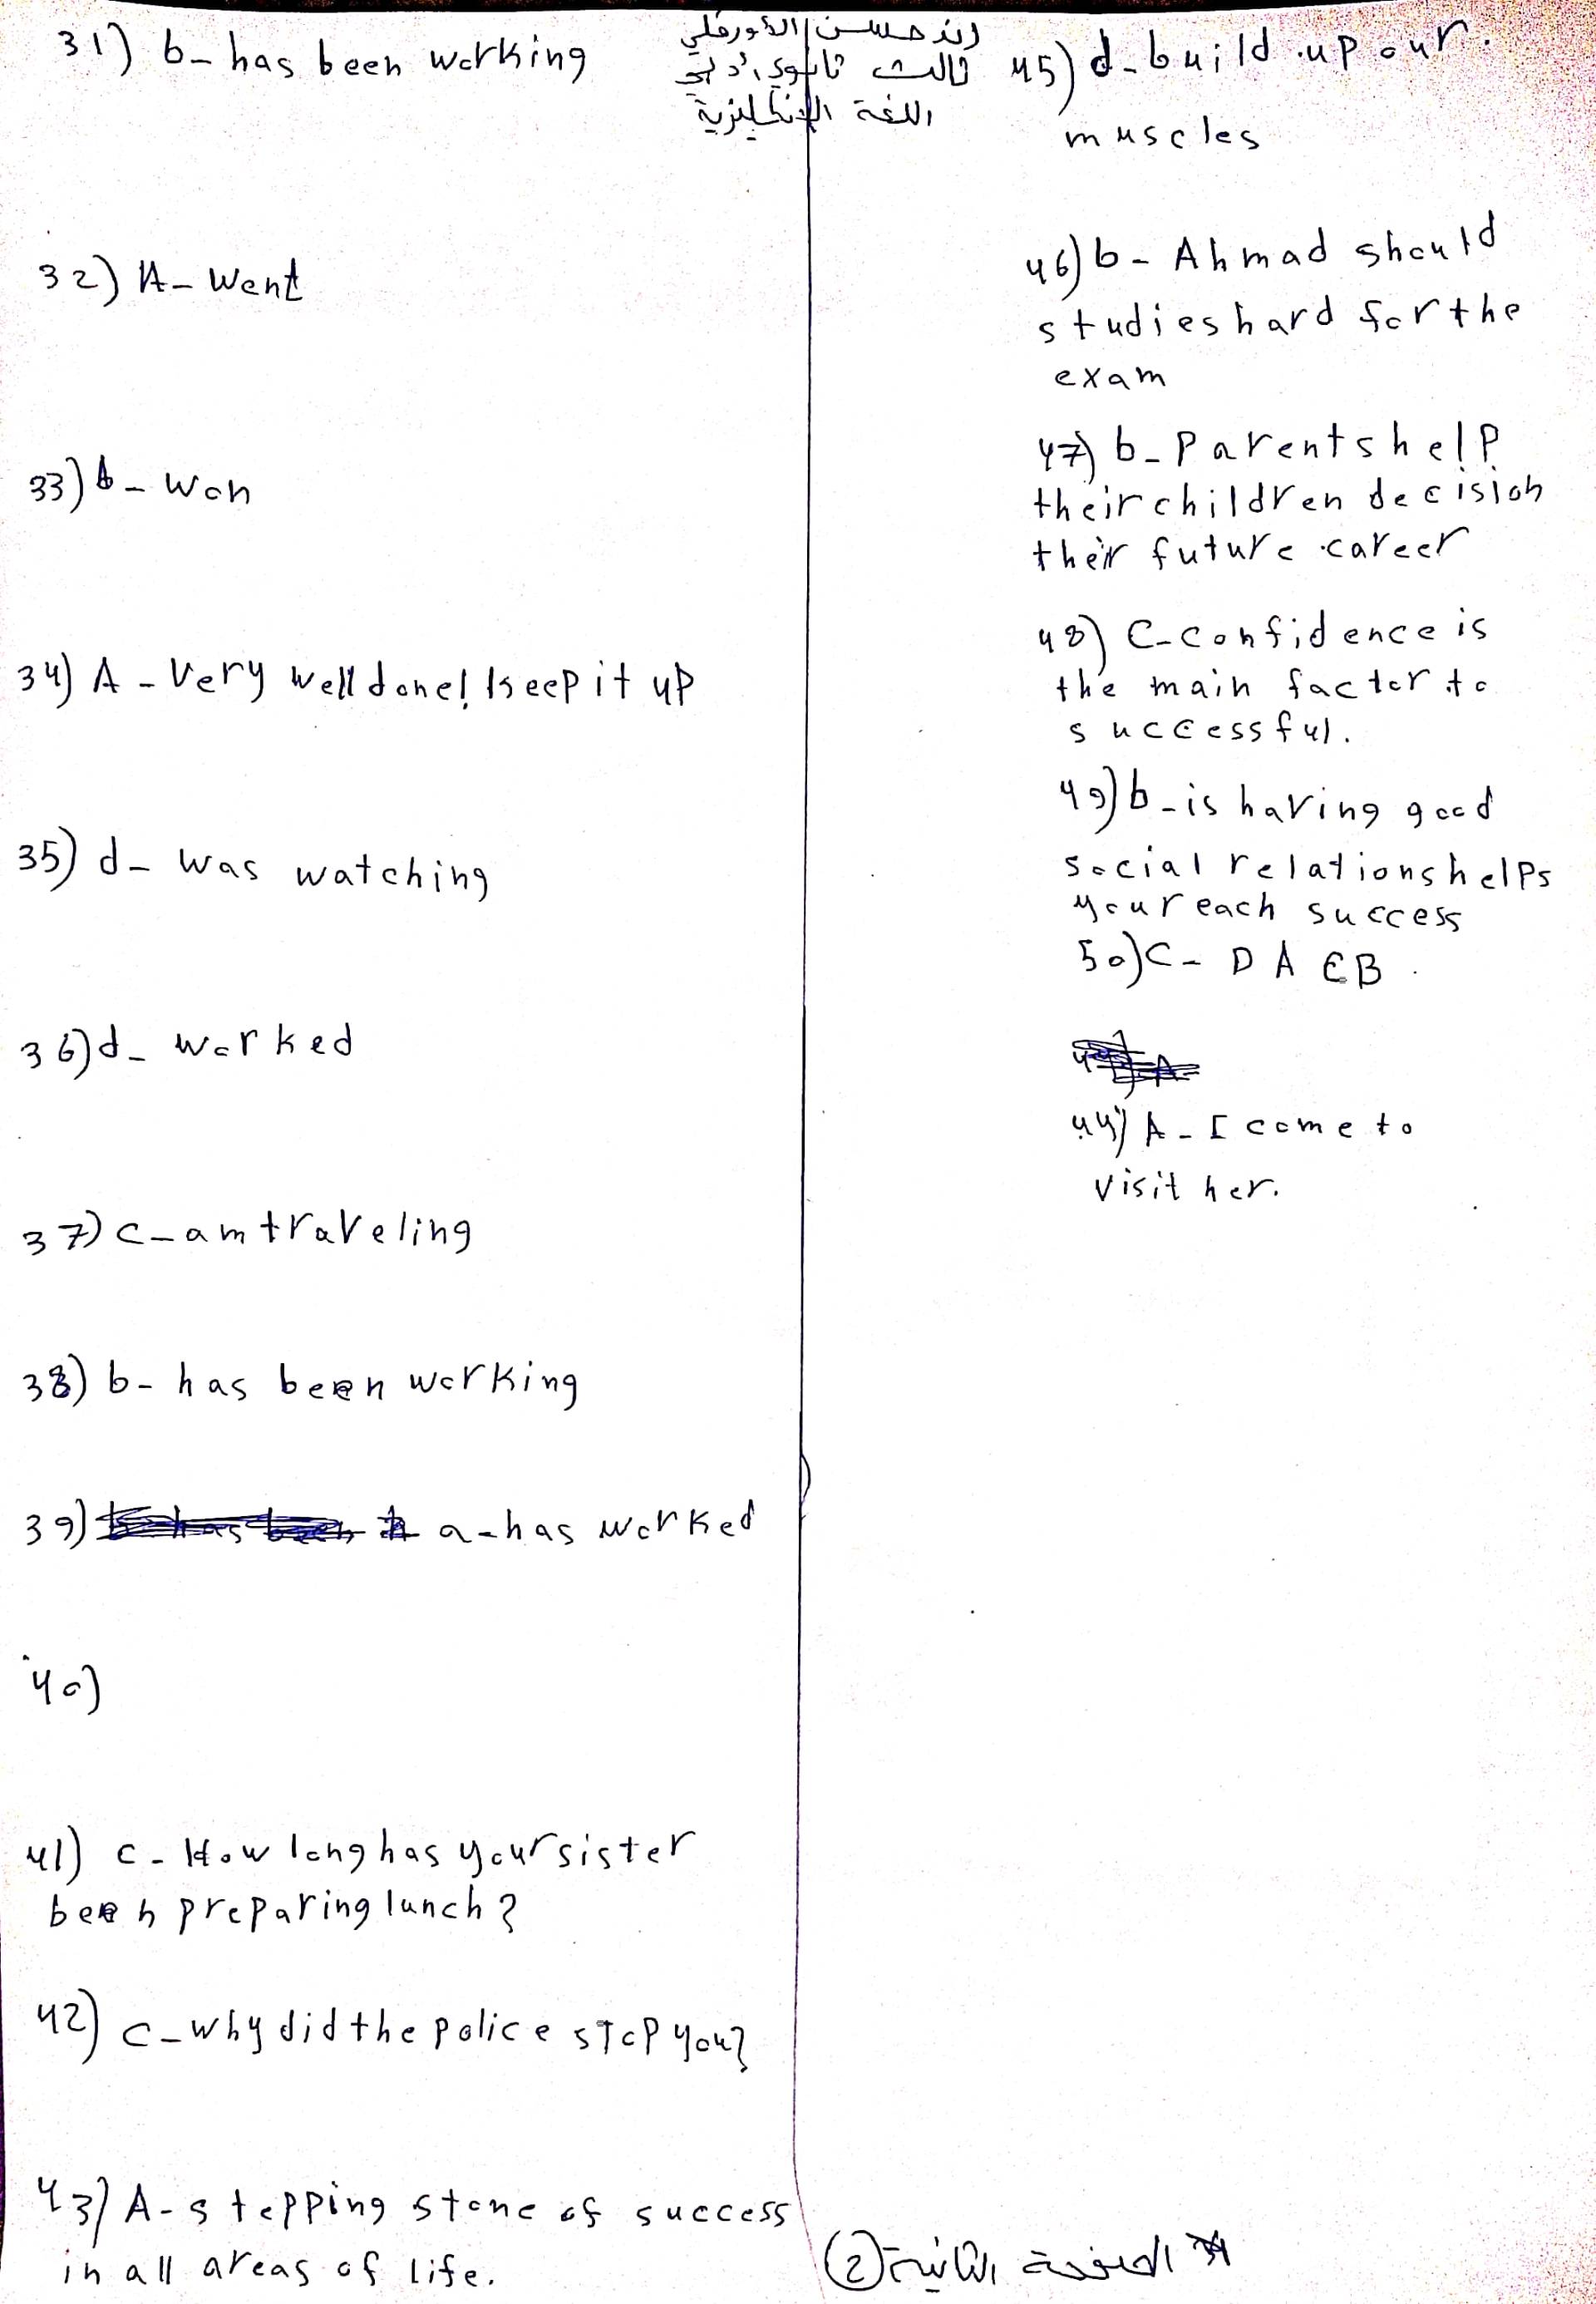 رند حسن الأورفلي
ثالث ثانوي أدبي
اللغة الإنكليزية
31) b- has been working
32) A- Went
33) b- Won
34) A- Very well done! keep it up
35) d- was watching
36) d- worked
37) c- am traveling
38) b- has been working
39) a- has worked
40)
41) c- How long has your sister
been preparing lunch?
42) c- why did the police stop you?
43) A- stepping stone of success
in all areas of life.
45) d- build up our
muscles
46) b- Ahmad should
studies hard for the
exam
47) b- Parents help
their children decision
their future career
48) C- confidence is
the main factor to
successful.
49) b- is having good
social relations helps
you reach success
50) C- D A E B
44) A- I come to
visit her.
الصفحة الثانية (2)